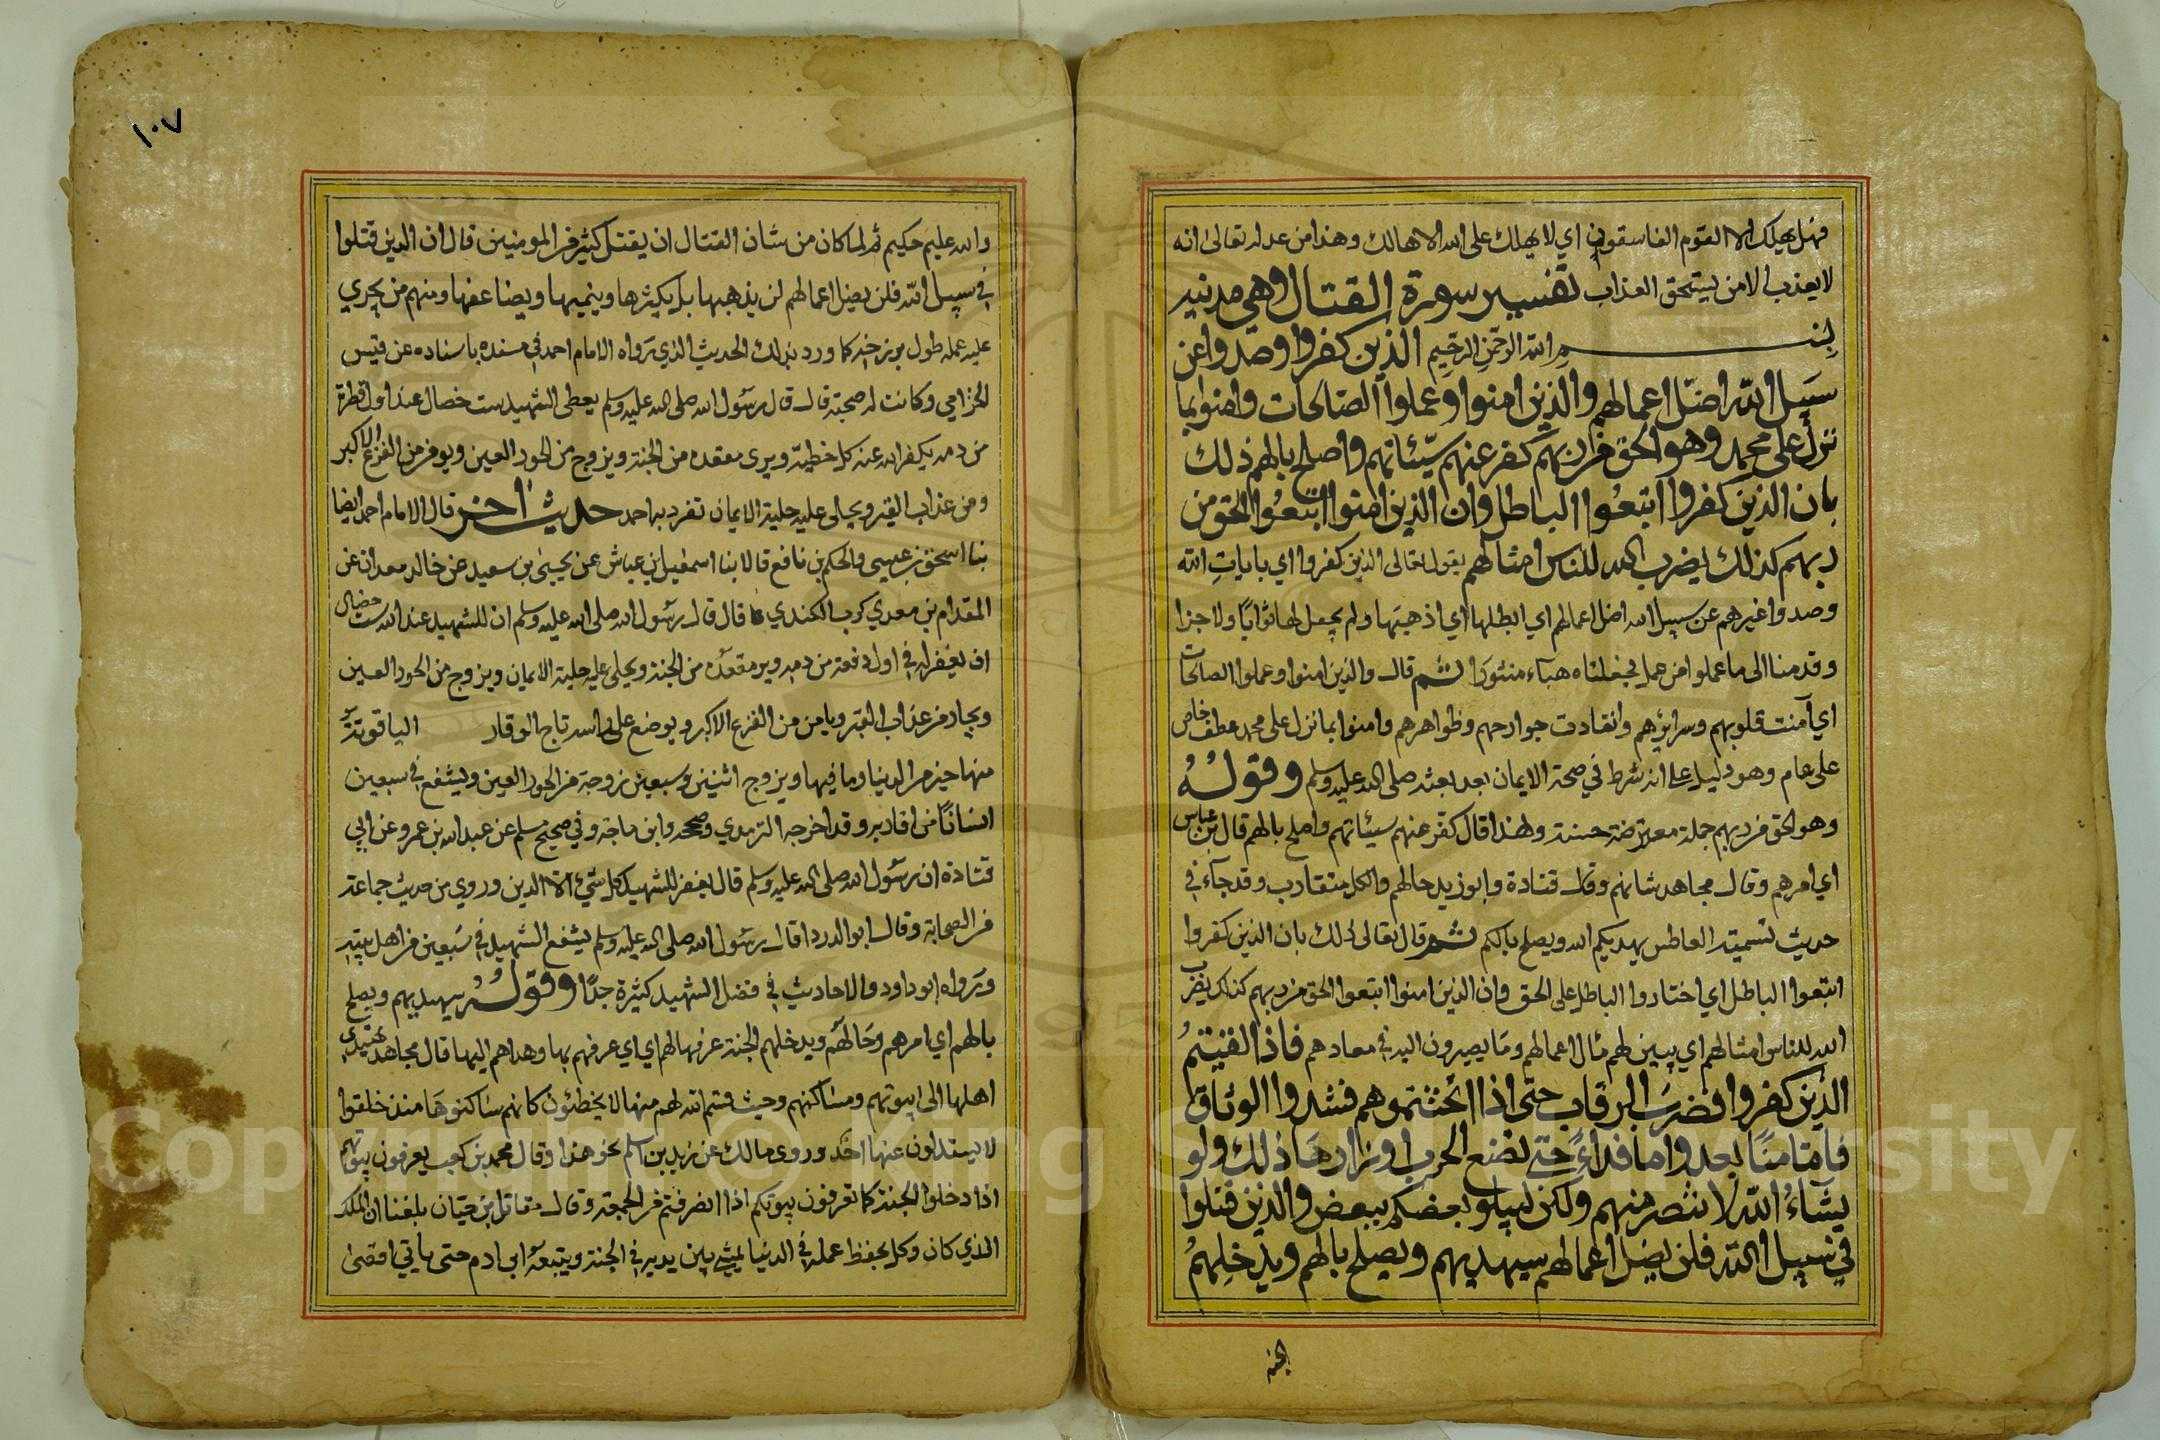 فهل يهلك الا القوم الفاسقون اي لا يهلك على الله الا هالك وهذا من عدله تعالى انه
لا يعذب الا من يستحق العذاب تفسير سورة القتال وهي مدنيه
بسم الله الرحمن الرحيم الذين كفروا وصدوا عن
سبيل الله اضل اعمالهم والذين امنوا وعملوا الصالحات وامنوا بما
نزل على محمد وهو الحق من ربهم كفر عنهم سيئاتهم واصلح بالهم ذلك
بان الذين كفروا اتبعوا الباطل وان الذين امنوا اتبعوا الحق من
ربهم كذلك يضرب الله للناس امثالهم يقول تعالى الذين كفروا اي بايات الله
وصدوا غيرهم عن سبيل الله اضل اعمالهم اي ابطلها اي اذهبها ولم يجعل لها ثوابا ولا جزا
وقدمنا الى ما عملوا من عمل فجعلناه هباء منثورا ثم قال والذين امنوا وعملوا الصالحات
اي آمنت قلوبهم وسرائرهم وانقادت جوارحهم وظواهرهم وامنوا بما نزل على محمد عطف خاص
على عام وهو دليل على انه شرط في صحة الايمان بعد بعثه صلى الله عليه وسلم وقوله
وهو الحق من ربهم جملة معترضة حسنة ولهذا قال كفر عنهم سيئاتهم واصلح بالهم قال بن عباس
اي امرهم وقال مجاهد شانهم وقال قتادة وابو زيد حالهم والكل متقارب وقد جاء في
حديث تسميت العاطس يهديكم الله ويصلح بالكم ثم قال تعالى ذلك بان الذين كفروا
اتبعوا الباطل اي اختاروا الباطل على الحق وان الذين امنوا اتبعوا الحق من ربهم كذلك يضرب
الله للناس امثالهم اي يبين لهم مآل اعمالهم وما يصيرون اليه في معادهم فاذا لقيتم
الذين كفروا فضرب الرقاب حتى اذا اثخنتموهم فشدوا الوثاق
فاما منا بعد واما فداء حتى تضع الحرب اوزارها ذلك ولو
يشاء الله لانتصر منهم ولكن ليبلو بعضكم ببعض والذين قتلوا
في سبيل الله فلن يضل اعمالهم سيهديهم ويصلح بالهم ويدخلهم
الجنة
١٠٧
والله عليم حكيم ثم لما كان من شان القتال ان يقتل كثير من المومنين قال ان الذين قتلوا
في سبيل الله فلن يضل اعمالهم لن يذهبها بل يكثرها وينميها ويضاعفها ومنهم من يجري
عليه عمله طول برزخه كما ورد بذلك الحديث الذي رواه الامام احمد في مسنده باسناده عن قيس
الجزامي وكانت له صحبة قال قال رسول الله صلى الله عليه وسلم يعطى الشهيد ست خصال عند اول قطرة
من دمه يكفر الله عنه كل خطيئة ويرى مقعده من الجنة ويزوج من الحور العين ويومن من الفزع الاكبر
ومن عذاب القبر ويحلى عليه حلية الايمان تفرد به احمد حديث آخر قال الامام احمد ايضا
ثنا اسحق بن عيسى والحكم بن نافع قالا ثنا اسمعيل بن عياش عن يحيى بن سعيد عن خالد معدان عن
المقدام بن معدي كرب الكندي قال قال رسول الله صلى الله عليه وسلم ان للشهيد عند الله ست خصال
ان يغفر له في اول دفعة من دمه ويرى مقعده من الجنة ويحلى عليه حلية الايمان ويزوج من الحور العين
ويجار من عذاب القبر ويامن من الفزع الاكبر ويوضع على راسه تاج الوقار الياقوتة
منها خير من الدنيا وما فيها ويزوج اثنين وسبعين زوجة من الحور العين ويشفع في سبعين
انسانا من اقاربه وقد اخرجه الترمذي وصححه وابن ماجة وفي صحيح مسلم عن عبد الله بن عمرو عن ابي
قتادة ان رسول الله صلى الله عليه وسلم قال يغفر للشهيد كل شيء الا الدين وروي من حديث جماعة
من الصحابة وقال ابو الدردا قال رسول الله صلى الله عليه وسلم يشفع الشهيد في سبعين من اهل بيته
ورواه ابو داود والاحاديث في فضل الشهيد كثيرة جدا وقوله سيهديهم ويصلح
بالهم اي امرهم وحالهم ويدخلهم الجنة عرفها لهم اي اي عرفهم بها وهداهم اليها قال مجاهد يهتدي
اهلها الى بيوتهم ومساكنهم وحيث قسم الله لهم منها لا يخطئون كانهم ساكنوها منذ خلقوا
لا يستدلون عنها احد وروى مالك عن زيد بن اسلم نحو هذا وقال محمد بن كعب يعرفون بيوتهم
اذا دخلوا الجنة كما تعرفون بيوتكم اذا انصرفتم من الجمعة وقال مقاتل بن حيان بلغنا ان الملك
الذي كان وكل بحفظ عمله في الدنيا يمشي بين يديه في الجنة ويتبعه ابن ادم حتى ياتي اقصى
Copyright © King Saud University